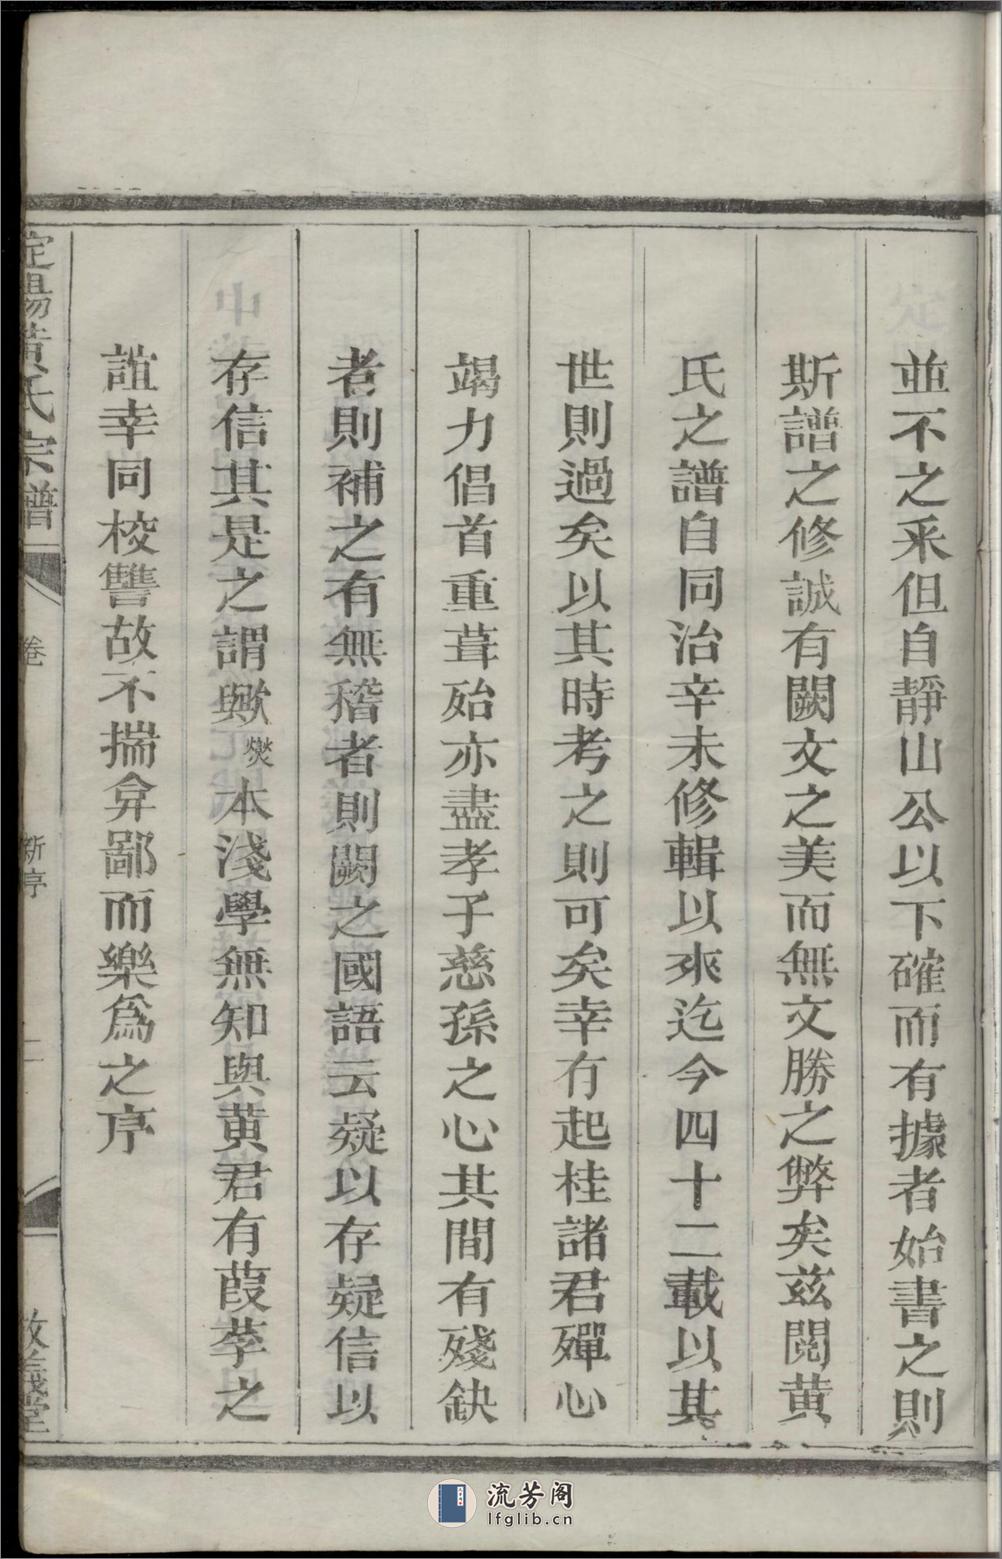 並不之采但自靜山公以下確而有據者始書之則
斯譜之修誠有闕文之美而無文勝之弊矣茲閱黃
氏之譜自同治辛未修輯以來迄今四十二載以其
世則過矣以其時考之則可矣幸有起桂諸君殫心
竭力倡首重葺殆亦盡孝子慈孫之心其間有殘缺
者則補之有無稽者則闕之國語云疑以存疑信以
存信其是之謂歟爕本淺學無知與黃君有葭莩之
誼幸同校讐故不揣弇鄙而樂爲之序
定陽黃氏宗譜
卷
新序
二
敦義堂
流芳阁
lfglib.cn